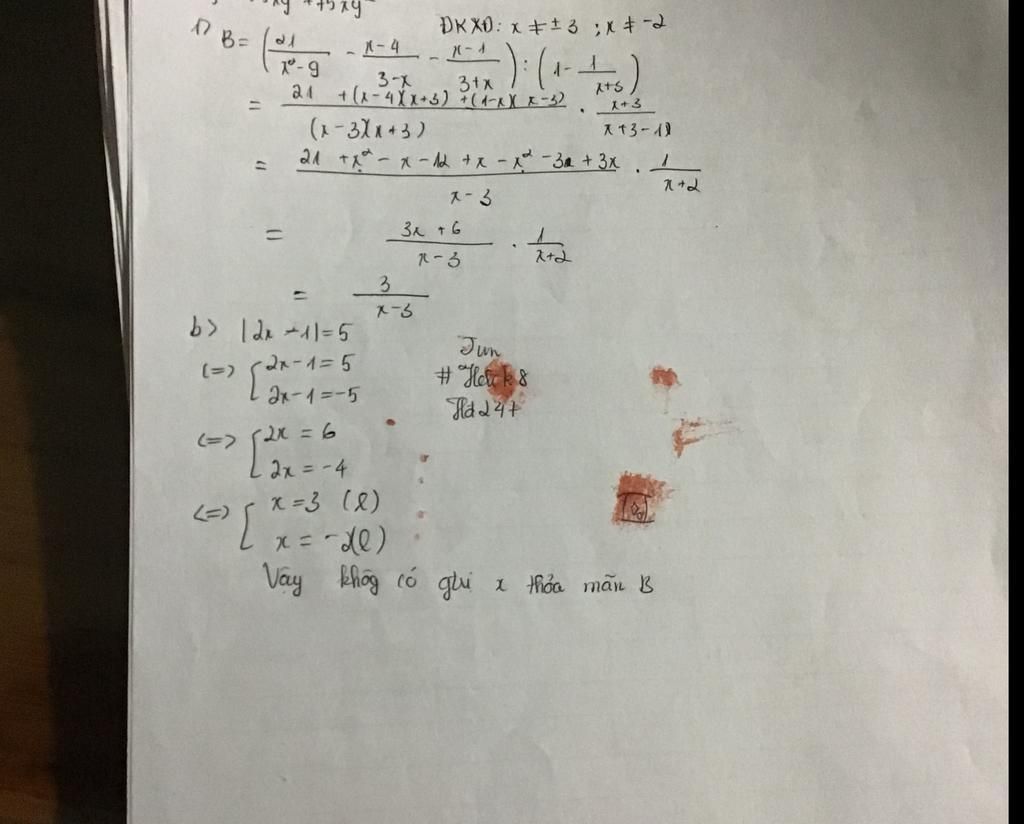 xy + 75xy
1) B = (21/(x²-9) - (x-4)/(3-x) - (x-1)/(3+x)) : (1 - 1/(x+3)) ĐKXĐ: x ≠ ±3 ; x ≠ -2
= (21 + (x-4)(x+3) + (1-x)(x-3))/((x-3)(x+3)) · (x+3)/(x+3-1)
= (21 + x² - x - 12 + x - x² - 3 + 3x)/(x-3) · 1/(x+2)
= (3x + 6)/(x-3) · 1/(x+2)
= 3/(x-3)
b) |2x - 1| = 5
(=) [2x-1 = 5
2x-1 = -5
<=> [2x = 6
2x = -4
<=> [x = 3 (l)
x = -2(l)
Vậy khôg có gtri x thỏa mãn B
Jun